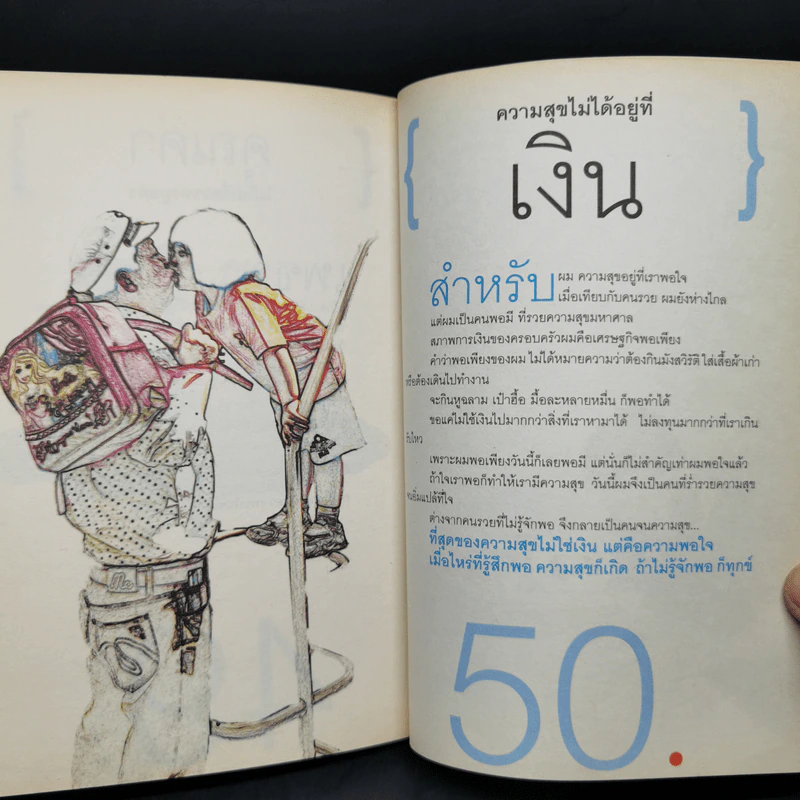 ความสุขไม่ได้อยู่ที่
{ เงิน }
สำหรับผม ความสุขอยู่ที่เราพอใจ
เมื่อเทียบกับคนรวย ผมยังห่างไกล
แต่ผมเป็นคนพอมี ที่รวยความสุขมหาศาล
สภาพการเงินของครอบครัวผมคือเศรษฐกิจพอเพียง
คำว่าพอเพียงของผม ไม่ได้หมายความว่าต้องกินมังสวิรัติ ใส่เสื้อผ้าเก่า
หรือต้องเดินไปทำงาน
จะกินหูฉลาม เป๋าฮื้อ มื้อละหลายหมื่น ก็พอทำได้
ขอแค่ไม่ใช้เงินไปมากกว่าสิ่งที่เราหามาได้ ไม่ลงทุนมากกว่าที่เราเกิน
รับไหว
เพราะผมพอเพียงวันนี้ก็เลยพอมี แต่นั่นก็ไม่สำคัญเท่าผมพอใจแล้ว
ถ้าใจเราพอก็ทำให้เรามีความสุข วันนี้ผมจึงเป็นคนที่ร่ำรวยความสุข
จนอิ่มแปล้ที่ใจ
ต่างจากคนรวยที่ไม่รู้จักพอ จึงกลายเป็นคนจนความสุข...
ที่สุดของความสุขไม่ใช่เงิน แต่คือความพอใจ
เมื่อไหร่ที่รู้สึกพอ ความสุขก็เกิด ถ้าไม่รู้จักพอ ก็ทุกข์
50.